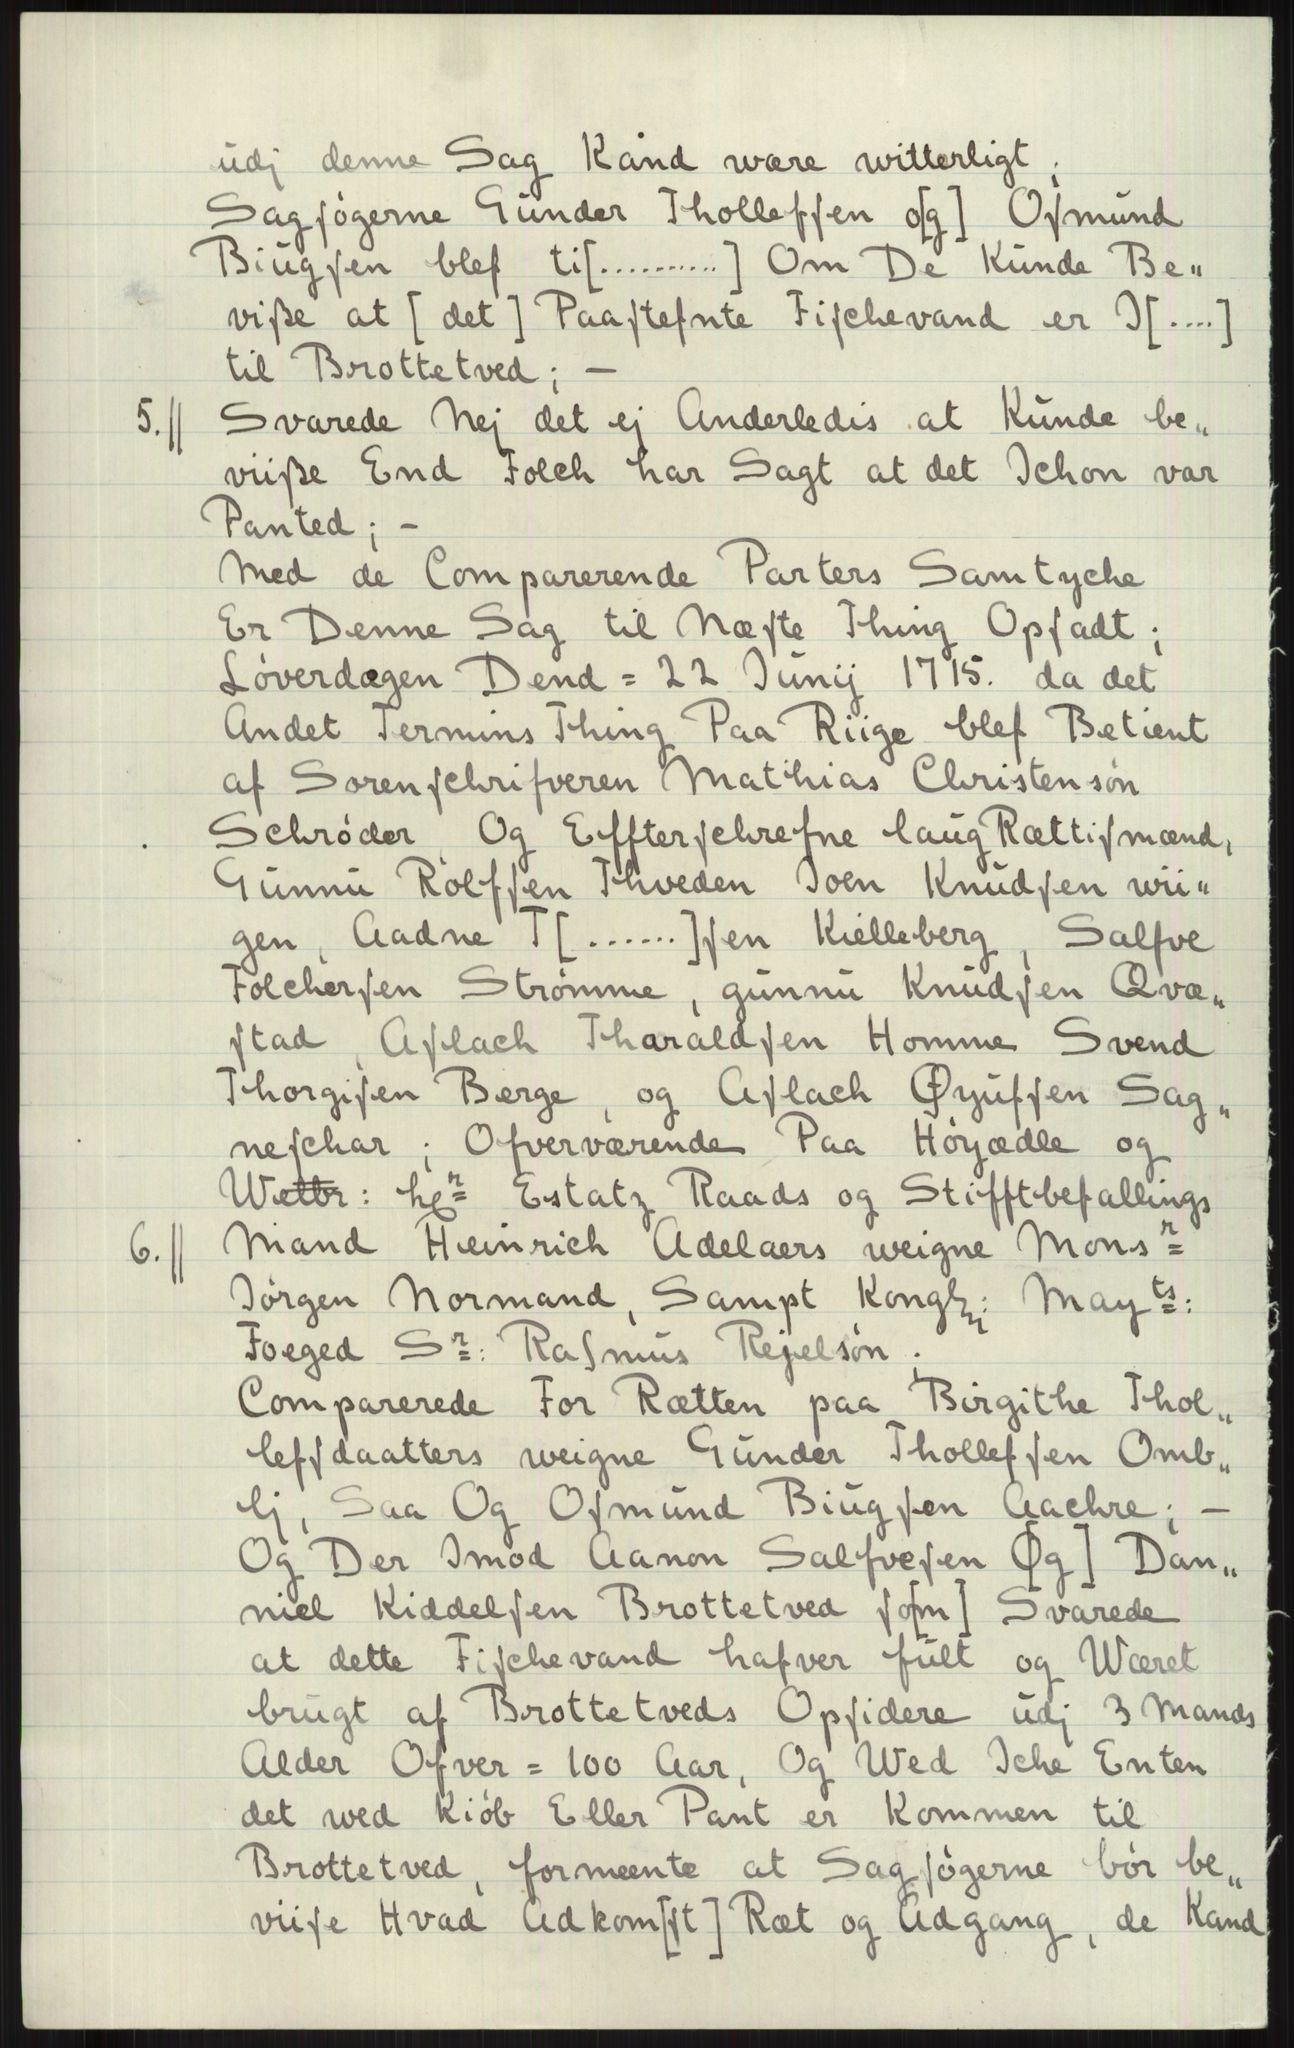 udj denne Sag Kand wære witterligt;
Sagſøgerne Gunder Tholleſſen o[g] Oſmund
Biugſen blef ti[..........] Om De Kunde Be„
viße at [det] Paaſtefnte Fiſchevand er I[....]
til Brottetved; –
5.// Svarede Nej det ej Anderledis at Kunde be„
viiße End Folch har Sagt at det Ichon var
Panted; –
Med de Comparerende Parters Samtyche
Er Denne Sag til Næſte Thing Opſadt;
Løverdagen Dend = 22 Junij 1715. da det
Andet Termins Thing Paa Riige blef Betient
af Sorenſchrifveren Mathias Christensøn
Schrøder, Og Effterſchrefne laugRættiſmænd,
Gunnu Rolfſen Thveden Joen Knudſen wii„
gen, Aadne T[......]ſen Kielleberg, Salfve
Folcherſen Strømme, gunnu Knudſen Qvæ„
ſtad, Aſlach Tharaldſen Homme Svend
Thorgiſen Berge, og Aſlach Øyufſen Sag„
neſchar; Ofverværende Paa Höyædle og
Welbr: hr Estatz Raads og Stifftbefallings
6.// Mand Heinrich Adelaers weigne Monsr
Jørgen Normand, Sampt Kongl: Mayts:
Foeged Sr: Raſmus Rejelsøn.
Comparerede For Rætten paa Birgithe Thol„
lefſdaatters weigne Gunder Thollefſen Omb„
lj, Saa Og Oſmund Biugſen Aachre; –
Og Der Imod Aanon Salfveſen O[g] Dan„
niel Kiddelſen Brottetved ſo[m] Svarede
at dette Fiſchevand hafver fult og Wæret
brugt af Brottetveds Opſidere udj 3 Mands
Alder Ofver = 100 Aar, Og Wed Iche Enten
det wed Kiøb Eller Pant er Kommen til
Brottetved, formeente at Sagſøgerne bør be„
viiſe Hvad Adkom[ſt] Ræt og Adgang, de Kand